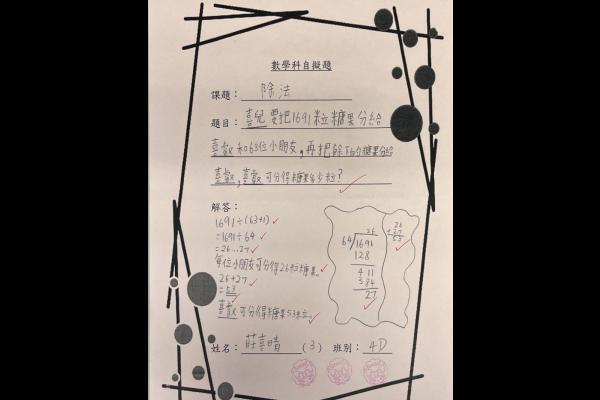 數學科自擬題
課題：除法
題目：喜兒要把1691粒糖果分給
喜歡和63位小朋友，再把餘下的糖果分給
喜歡，喜歡可分得糖果多少粒？
解答：
1691÷(63+1)
=1691÷64
=26...27
每位小朋友可分得26粒糖果。
26+27
=53
喜歡可分得糖果53粒。
26
64 1691
128
411
384
27
26
+27
53
姓名：莊喜晴（3） 班別：4D